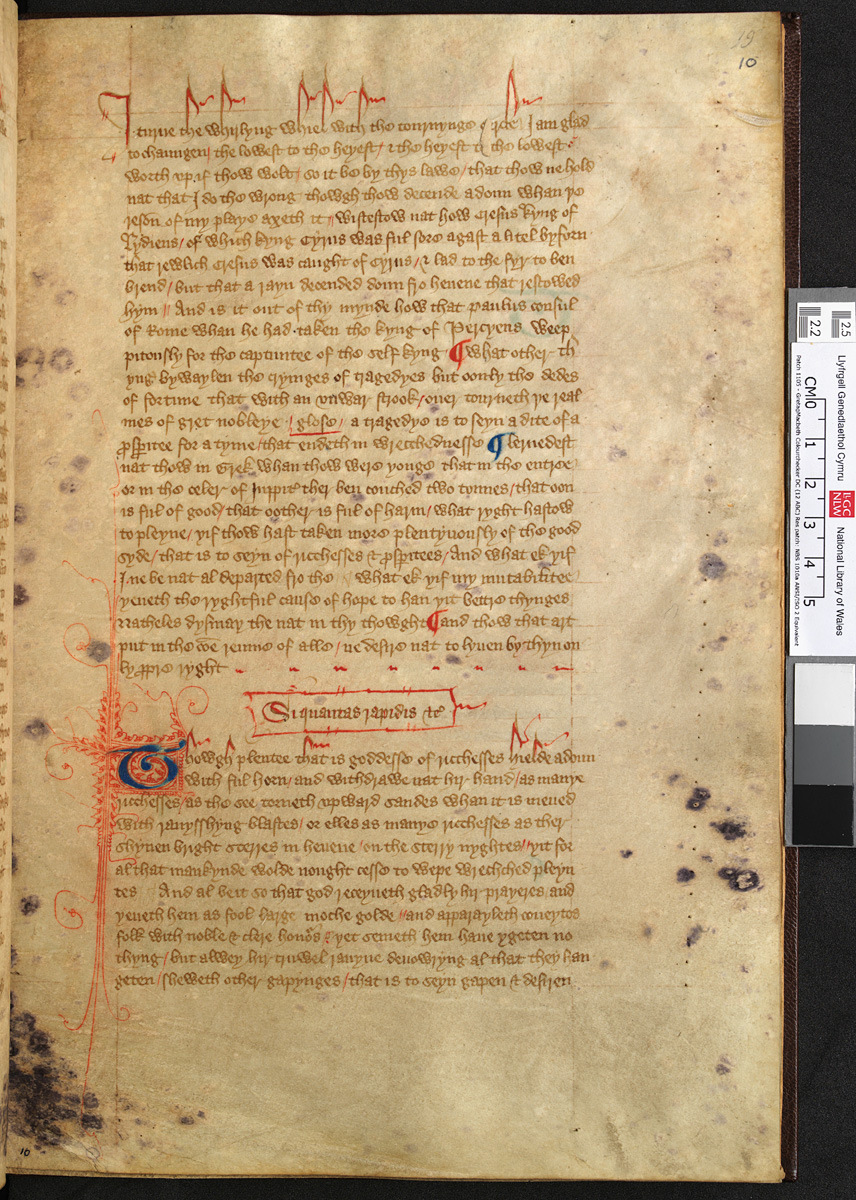 19
10
I turne the whirlyng wheel with the tournynge I am glad
to chaungen the lowest to the heyest / & the heyest to the lowest
worth vp if thow wolt / so it be by thys lawe / that thow ne hold
nat that I do the wrong thowgh thow decende adoun whan þe
reson of my pleye axeth it // wistestow nat how cresus kyng of
lydiens / of which kyng Cyrus was ful sore agast a litel byforn
that rewlich cresus was caught of Cyrus / & lad to the fyr to ben
brend / but that a rayn decended doun fro heuene that rescowed
hym // And is it out of thy mynde how that paulus consul
of Rome whan he had taken the kyng of Percyens weep
pitously for the captiuitee of the self kyng ¶ what other th
yng bywaylen the cryinges of tragedyes but oonly the dedes
of fortune that with an vnwar strook / ouer tourneth þe real
mes of gret nobleye / glose / a tragedye is to seyn a dite of a
prosperitee for a tyme / that endeth in wrecchednesse ¶ lernedest
nat thow in Grek whan thow were yonge that in the entree
or in the celer of Iuppiter ther ben couched two tynnes / that oon
is ful of good / that oother is ful of harm / what ryght hastow
to pleyne / yif thow hast taken more plentyuously of the good
syde / that is to seyn of ricchesses & prosperitees / And what ek yif
I ne be nat al departed fro the what ek yif my mutabilitee
yeueth the ryghtful cause of hope to han yit bettre thynges
Natheles dysmay the nat in thy thowght ¶ and thow that art
put in the comune reaume of alle / ne desire nat to lyuen by thyn on
ly propre ryght
Si quantas rapidis etc
Thowgh plentee that is goddesse of ricchesses hielde adoun
with ful horn / and withdrawe nat hir hand / as manye
ricchesses / as the see torneth vpward sandes whan it is meued
with rauysshyng blastes / or elles as manye ricchesses as ther
shynen bright sterres in heuene / on the sterry nyghtes / yit for
al that mankynde wolde nought cesse to wepe wrecched pleyn
tes And al be it so that god receyueth gladly hir prayeres and
yeueth hem as fool large moche golde // and apparayleth coueytos
folk with noble & clere honors / yet semeth hem haue ygeten no
thyng / but alwey hir cruwel rauyne deuowryng al that they han
geten / sheweth other gapynges / that is to seyn gapen & desiren
10
Llyfrgell Genedlaethol Cymru
National Library of Wales
LlGC
NLW
CM 0 1 2 3 4 5
2.2
2.5